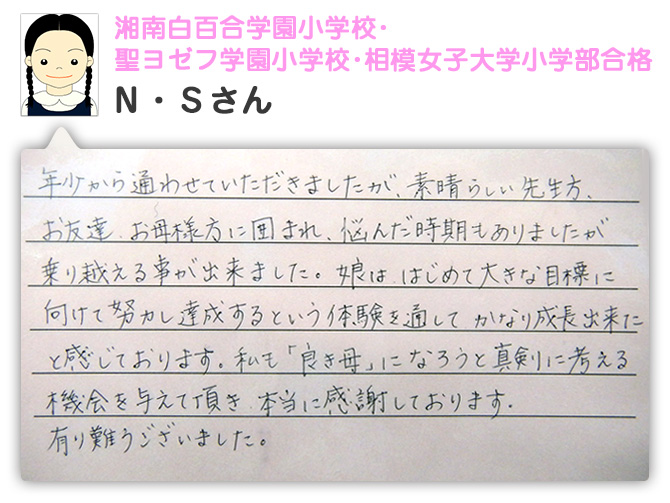 湘南白百合学園小学校・
聖ヨゼフ学園小学校・相模女子大学小学部合格
N・Sさん
年少から通わせていただきましたが、素晴らしい先生方、
お友達、お母様方に囲まれ、悩んだ時期もありましたが
乗り越える事が出来ました。娘は、はじめて大きな目標に
向けて努力し達成するという体験を通して かなり成長出来た
と感じております。私も「良き母」になろうと真剣に考える
機会を与えて頂き、本当に感謝しております。
有り難うございました。